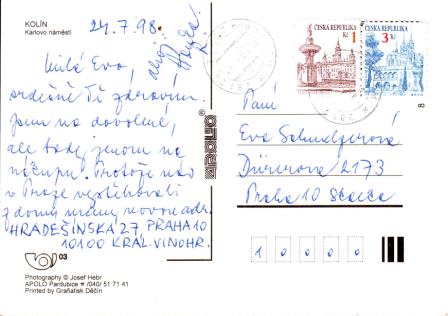 KOLÍN
Karlovo náměstí
24.7.98
ahoj
Milá Evo,
srdečně Tě zdravím
jsem na dovolené,
ale tady jenom na
nákupu. Protože nás
v Praze vystěhovali
z domu máme novou adr.
HRADEŠÍNSKÁ 27, PRAHA 10
10100 KRÁL. VINOHR.
03
Photography © Josef Hebr
APOLO Pardubice ☎ /040/ 51 71 41
Printed by Grafiatisk Děčín
APOLO
ČESKÁ REPUBLIKA
Kč 1
ČESKÁ REPUBLIKA
3 Kč
8
Paní
Eva
Dürerova 2173
Praha 10
1 0 0 0 0